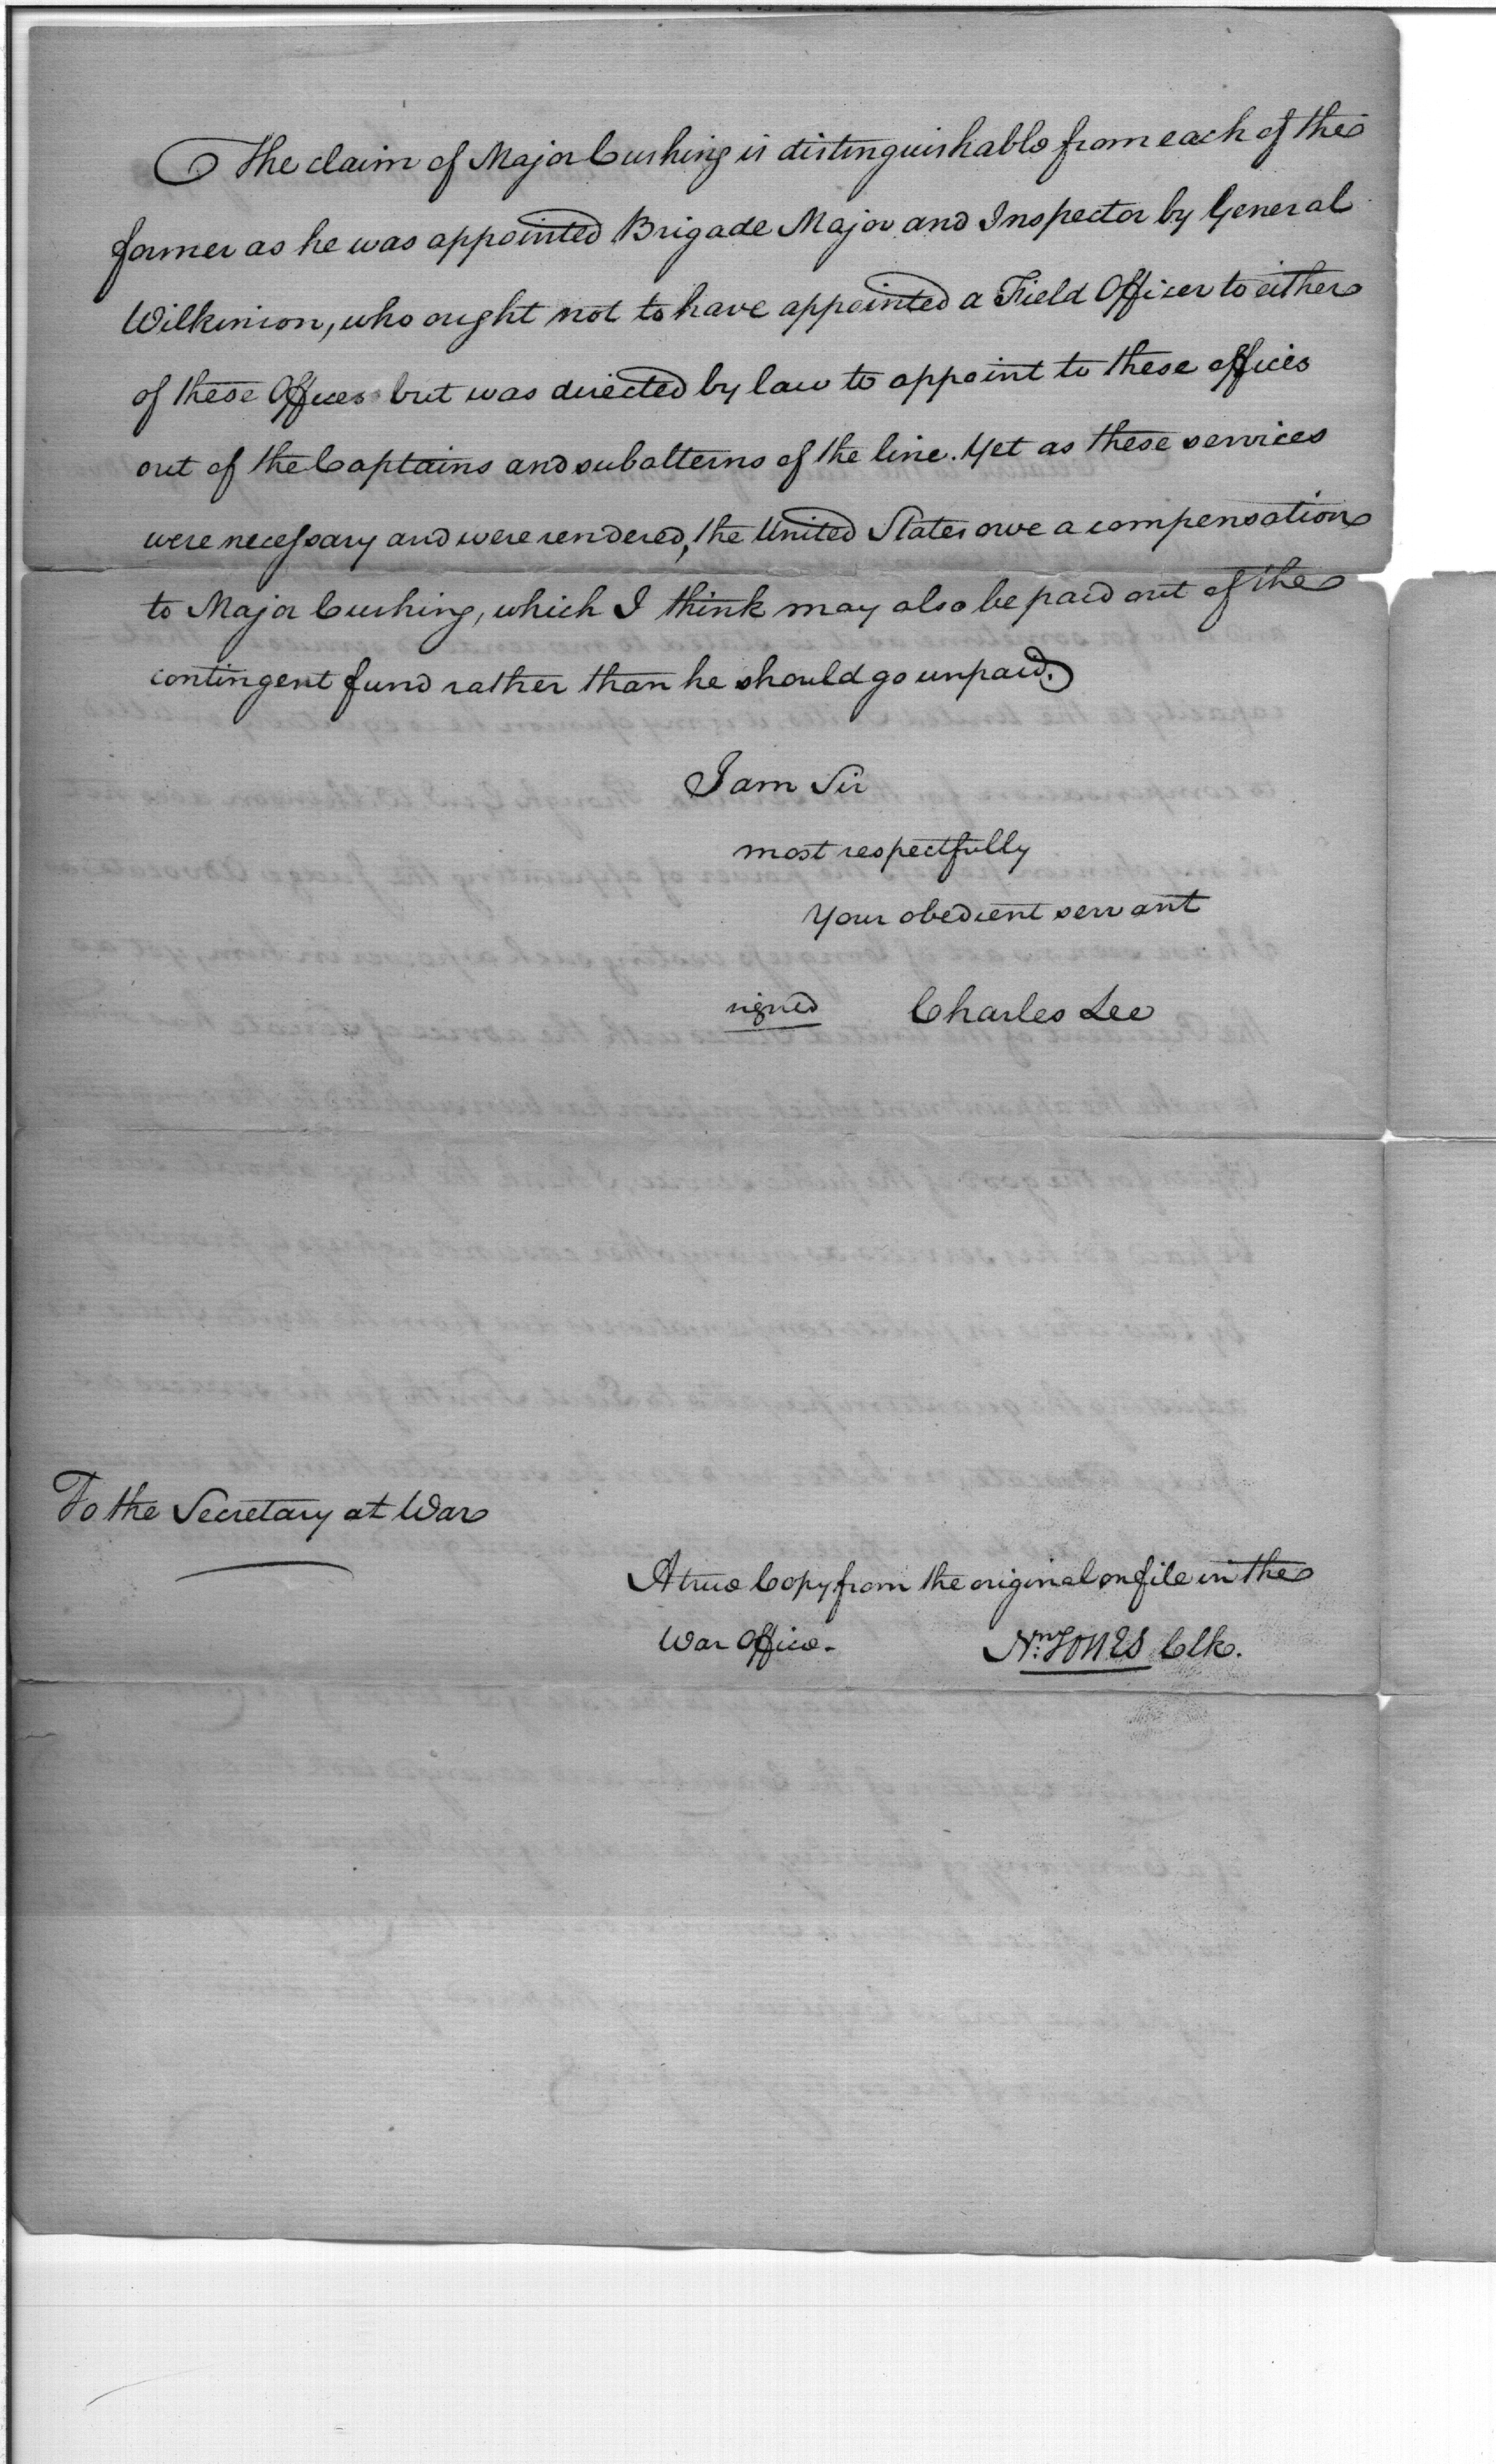 The claim of Major Cushing is distinguishable from each of the
former as he was appointed Brigade Major and Inspector by General
Wilkinson, who ought not to have appointed a Field Officer to either
of these Offices but was directed by law to appoint to these offices
out of the Captains and subalterns of the line. Yet as these services
were necessary and were rendered, the United States owe a compensation
to Major Cushing, which I think may also be paid out of the
contingent fund rather than he should go unpaid.
I am Sir
most respectfully
Your obedient servant
signed Charles Lee
To the Secretary at War
A true Copy from the original on file in the
War Office.
Nn. JONES Clk.